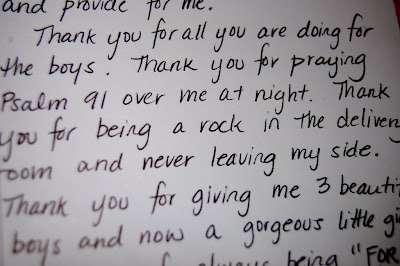 and provide for me.
Thank you for all you are doing for
the boys. Thank you for praying
Psalm 91 over me at night. Thank
you for being a rock in the deliver
room and never leaving my side.
Thank you for giving me 3 beauti
boys and now a gorgeous little gi
always being "FOR